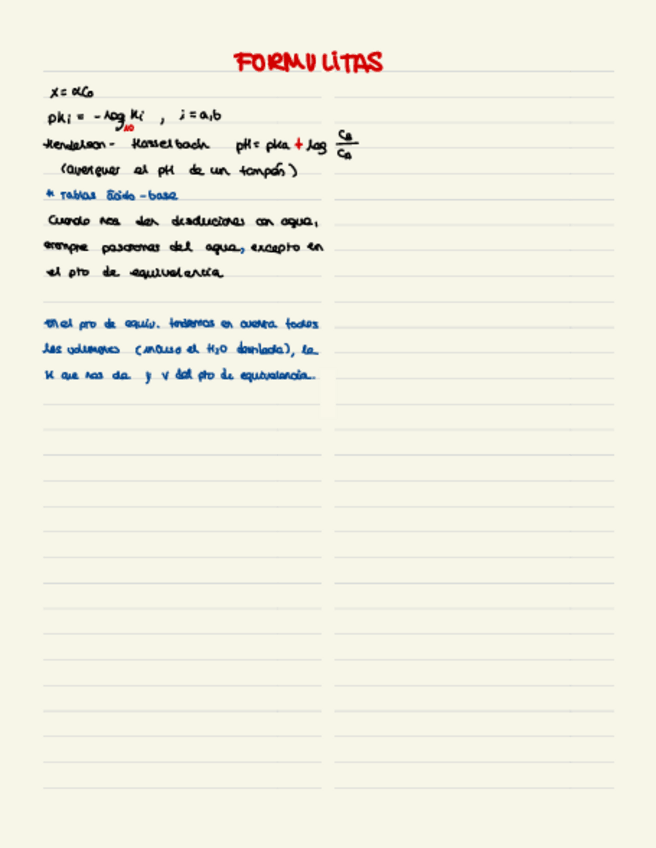 FORMULITAS
x = αC₀
pKi = -log₁₀ Ki , i = a,b
Henderson - Hasselbach pH = pKa + log CB/CA
(averiguar el pH de un tampón)
* Tablas ácido-base
Cuando nos den disoluciones con agua,
siempre pasaremos del agua, excepto en
el pto de equivalencia
en el pto de equiv. tendremos en cuenta todos
los volúmenes (incluso el H₂O destilada), la
K que nos da y V del pto de equivalencia.